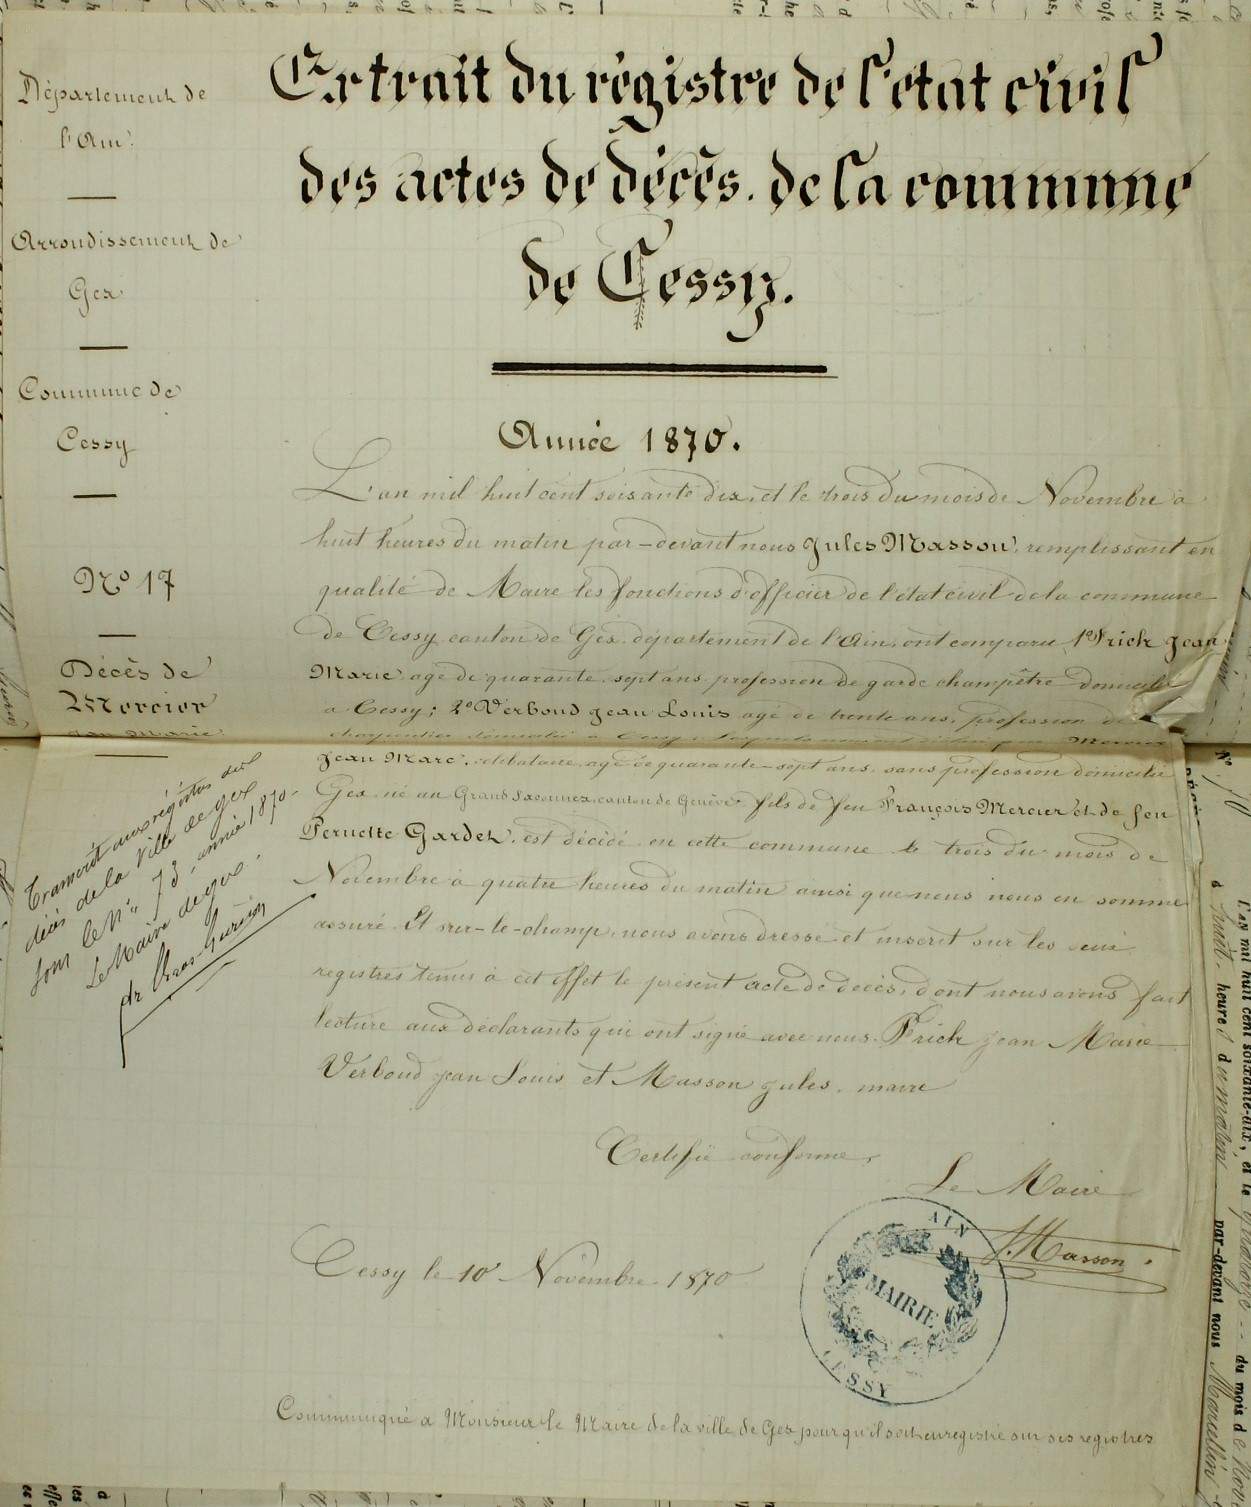 Extrait du régistre de l'état civil
des actes de décès. de la commune
de Cessy.
Année 1870.
Département de
l'Ain
Arrondissement de
Gex
Commune de
Cessy
No 17
Décès de
Mercier
Jean Marie
L'an mil huit cent soisante dix, et le trois du mois de Novembre à
huit heures du matin par-devant nous Jules Masson, remplissant en
qualité de Maire les fonctions d'officier de l'état civil de la commune
de Cessy canton de Gex département de l'Ain, ont comparu 1o Frick Jean
Marie agé de quarante sept ans profession de garde champêtre domicilié
a Cessy; 2o Verboud Jean Louis agé de trente ans, profession de
charpentier domicilié a Cessy; Mercier
Jean Marc, célibataire, agé de quarante-sept ans, sans profession domicilié
Gex né au Grand Saconnex canton de Genève fils de feu François Mercier et de feu
Pernette Gardet, est décédé en cette commune le trois du mois de
Novembre à quatre heures du matin ainsi que nous nous en sommes
assuré. Et sur-le-champ, nous avons dressé et inscrit sur les
registres tenus à cet effet le présent acte de décès, dont nous avons fait
lecture aux déclarants qui ont signé avec nous. Frick Jean Marie
Verboud Jean Louis et Masson Jules, maire
Certifié conforme,
Le Maire
J. Masson
Cessy le 10 Novembre 1870
AIN
MAIRIE
CESSY
Communiqué a Monsieur le Maire de la ville de Gex pour qu'il soit enregistré sur ses registres
Transcrit aux régistres de
décès de la Ville de Gex
sous le No 73, année 1870
Le Maire de Gex
No 70
L'an mil huit cent soixante-dix, et le quatorze du mois de Nov
à huit heures du matin par-devant nous Marcellin